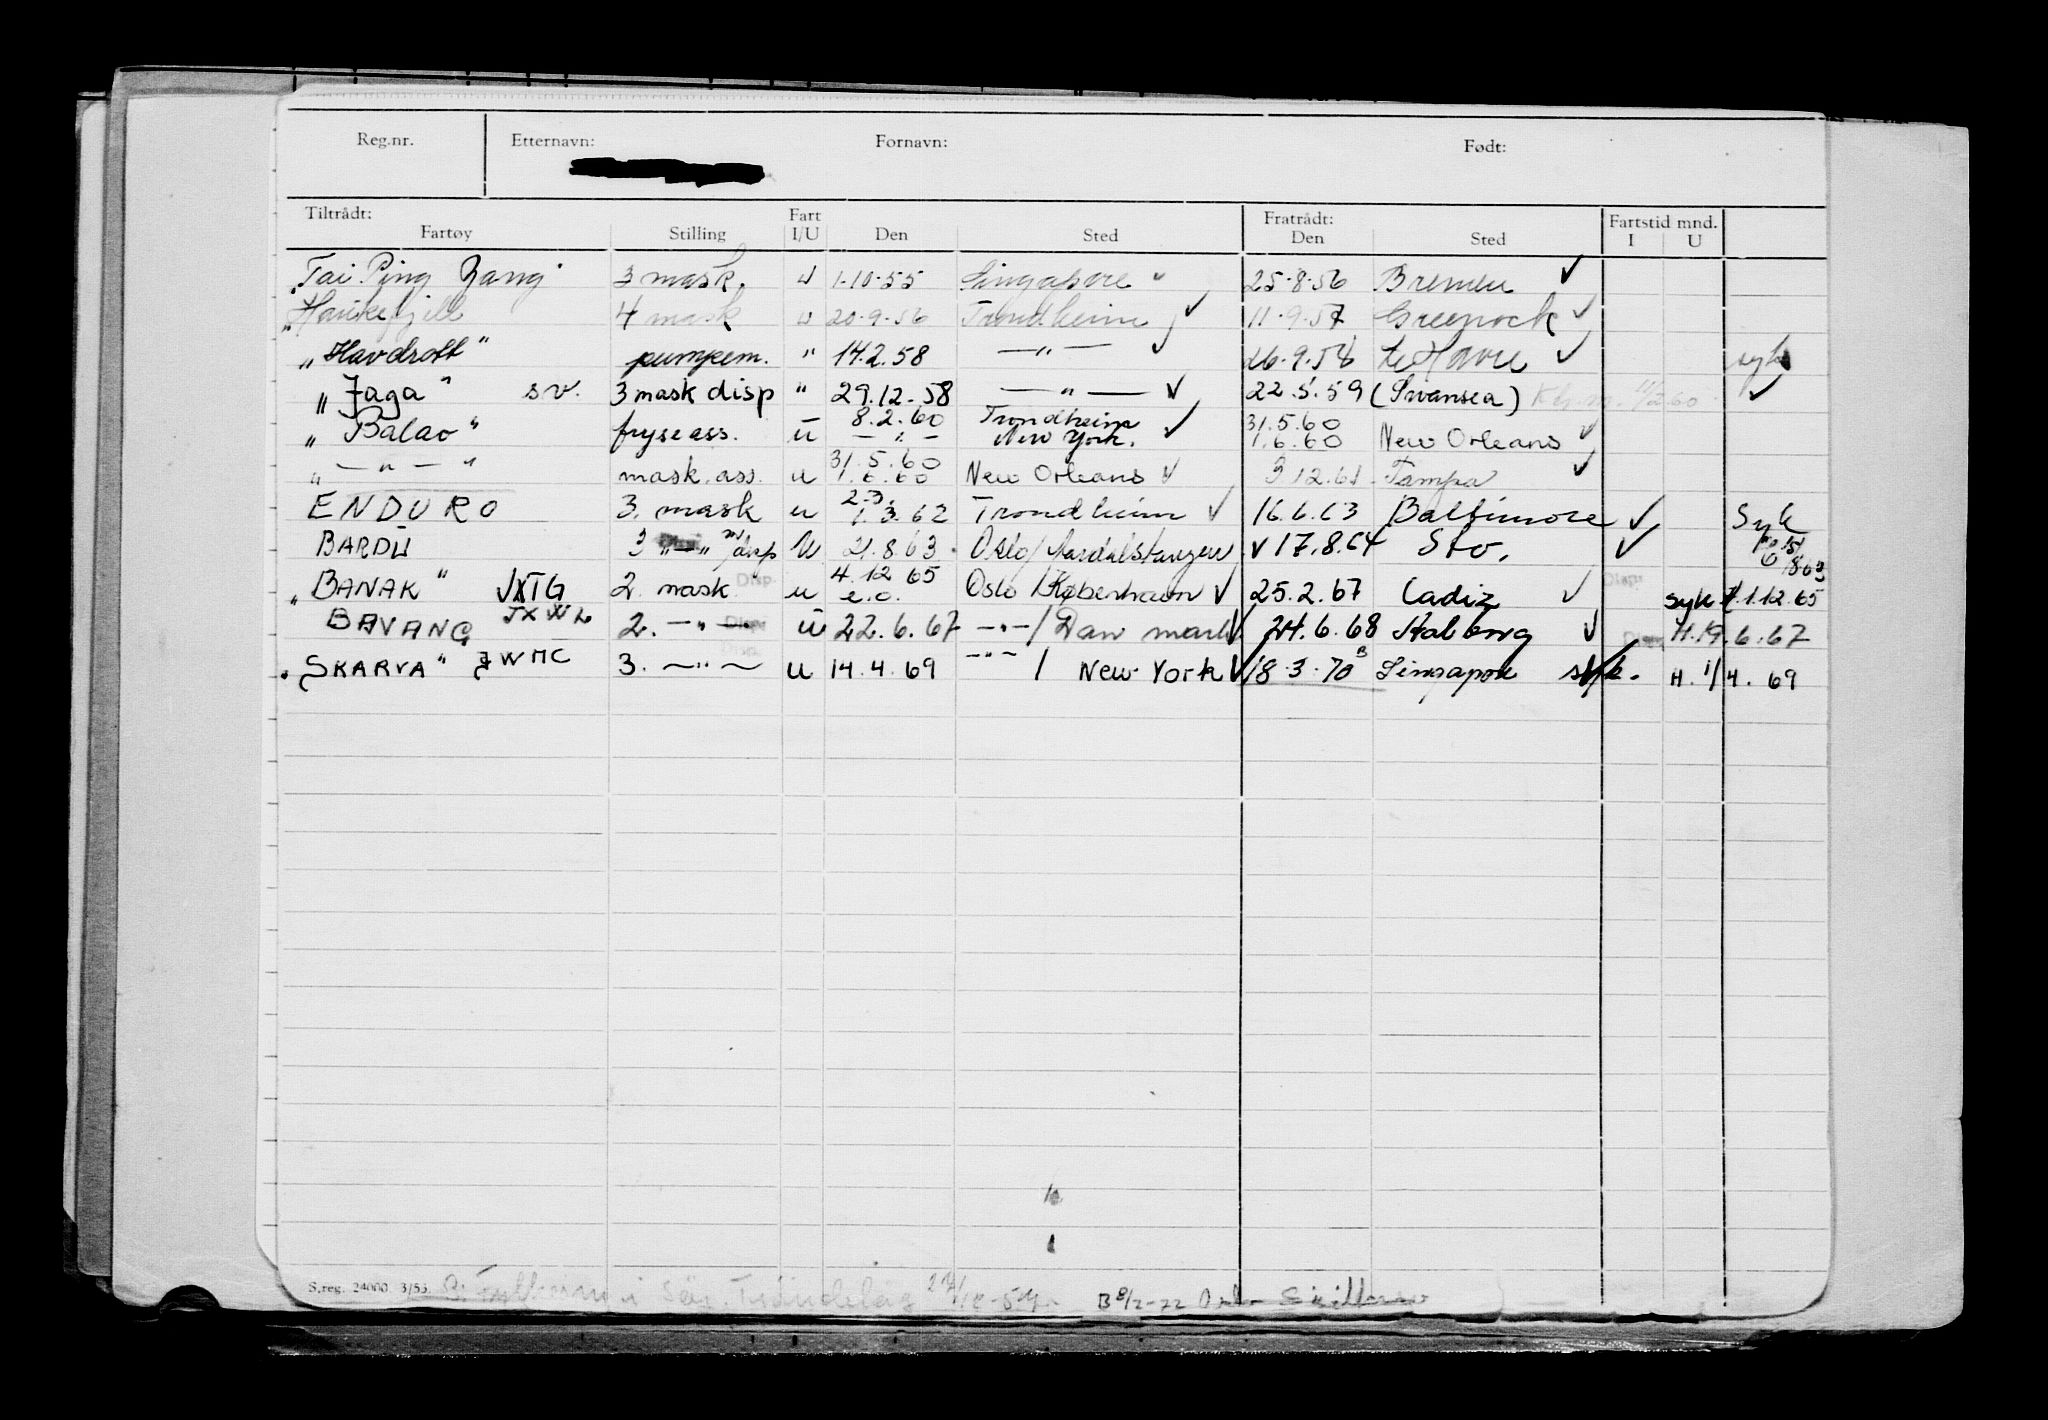 Reg.nr. Etternavn: Fornavn: Født:
Tiltrådt: Fart Fratrådt: Fartstid mnd.
Fartøy Stilling I/U Den Sted Den Sted I U
Tai Ping Yang 3 mask. u 1.10.55 Singapore 25.8.56 Bremen ✓
"Haukefjell 4 mask u 20.9.56 Trondheim ✓ 11.9.57 Greenock ✓
"Havdrott" pumpem. " 14.2.58 —"— ✓ 26.9.58 Le Havre ✓ syk
"Jaga" sv. 3 mask disp " 29.12.58 —"— ✓ 22.5.59 (Swansea) 11/2 60 ✓
8.2.60 Trondheim 31.5.60
"Balao" fryseass. u —"— New York. ✓ 1.6.60 New Orleans ✓
31.5.60
"—"—" mask.ass. u 1.6.60 New Orleans ✓ 3 12.61 Tampa ✓
2.3.
ENDURO 3. mask u 1.3.62 Trondheim ✓ 16.6.63 Baltimore ✓ Syk
BARDU 3 "—" m/disp U 21.8.63. Oslo/Aardalstangen ✓ 17.8.64 Sto. ✓
4.12 65
"BANAK" JXTG 2. mask Disp. u e.o. Oslo/København ✓ 25.2.67 Cadiz ✓ Disp. syk f. 1.12.65
BAVANG JXWL 2. —"— Disp. u 22.6.67 —"—/Danmark ✓ 24.6.68 Aalborg ✓ Disp. H.19.6.67
"SKARVA" JWMC 3. —"— Disp. u 14.4.69 —"—/ New York ✓ 18.3.70 Singapore syk. H. 1/4. 69
S.reg. 24000. 3/53. i Sør-Trøndelag
B 8/2-72